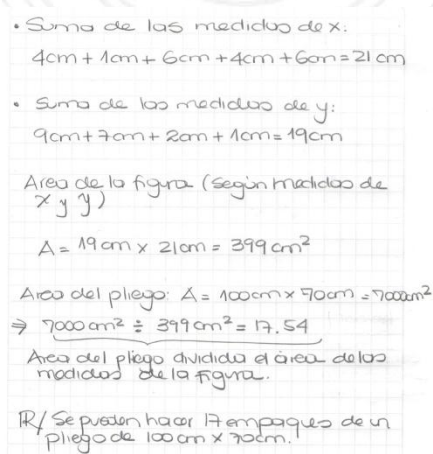 • Suma de las medidas de x:
4cm + 1cm + 6cm + 4cm + 6cm = 21 cm
• Suma de las medidas de y:
9cm + 7cm + 2cm + 1cm = 19cm
Area de la figura (según medidas de
x y y)
A = 19 cm x 21cm = 399 cm²
Area del pliego: A = 100cm x 70cm = 7000cm²
⇒ 7000 cm² ÷ 399 cm² = 17.54
Area del pliego dividida el área de las
medidas de la figura.
R/ Se pueden hacer 17 empaques de un
pliego de 100 cm x 70cm.